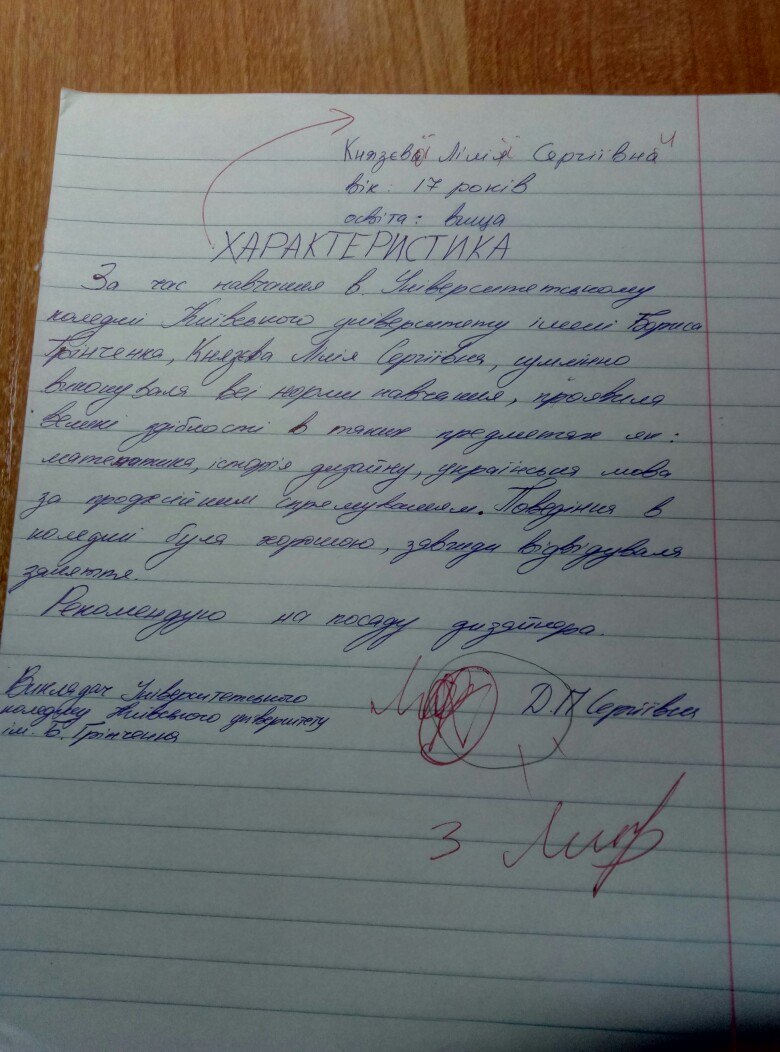 Князєвої Лілії Сергіївни
вік: 17 років
освіта: вища
ХАРАКТЕРИСТИКА
За час навчання в Університетському
коледжі Київського університету імені Бориса
Грінченка, Князєва Лілія Сергіївна, сумлінно
виконувала всі норми навчання, проявила
великі здібності в таких предметах як:
математика, історія дизайну, українська мова
за професійним спрямуванням. Поведінка в
коледжі була хорошою, завжди відвідувала
заняття.
Рекомендую на посаду дизайнера.
Викладач Університетського
коледжу Київського університету
ім. Б. Грінченка
Д.М Сергіївна
3